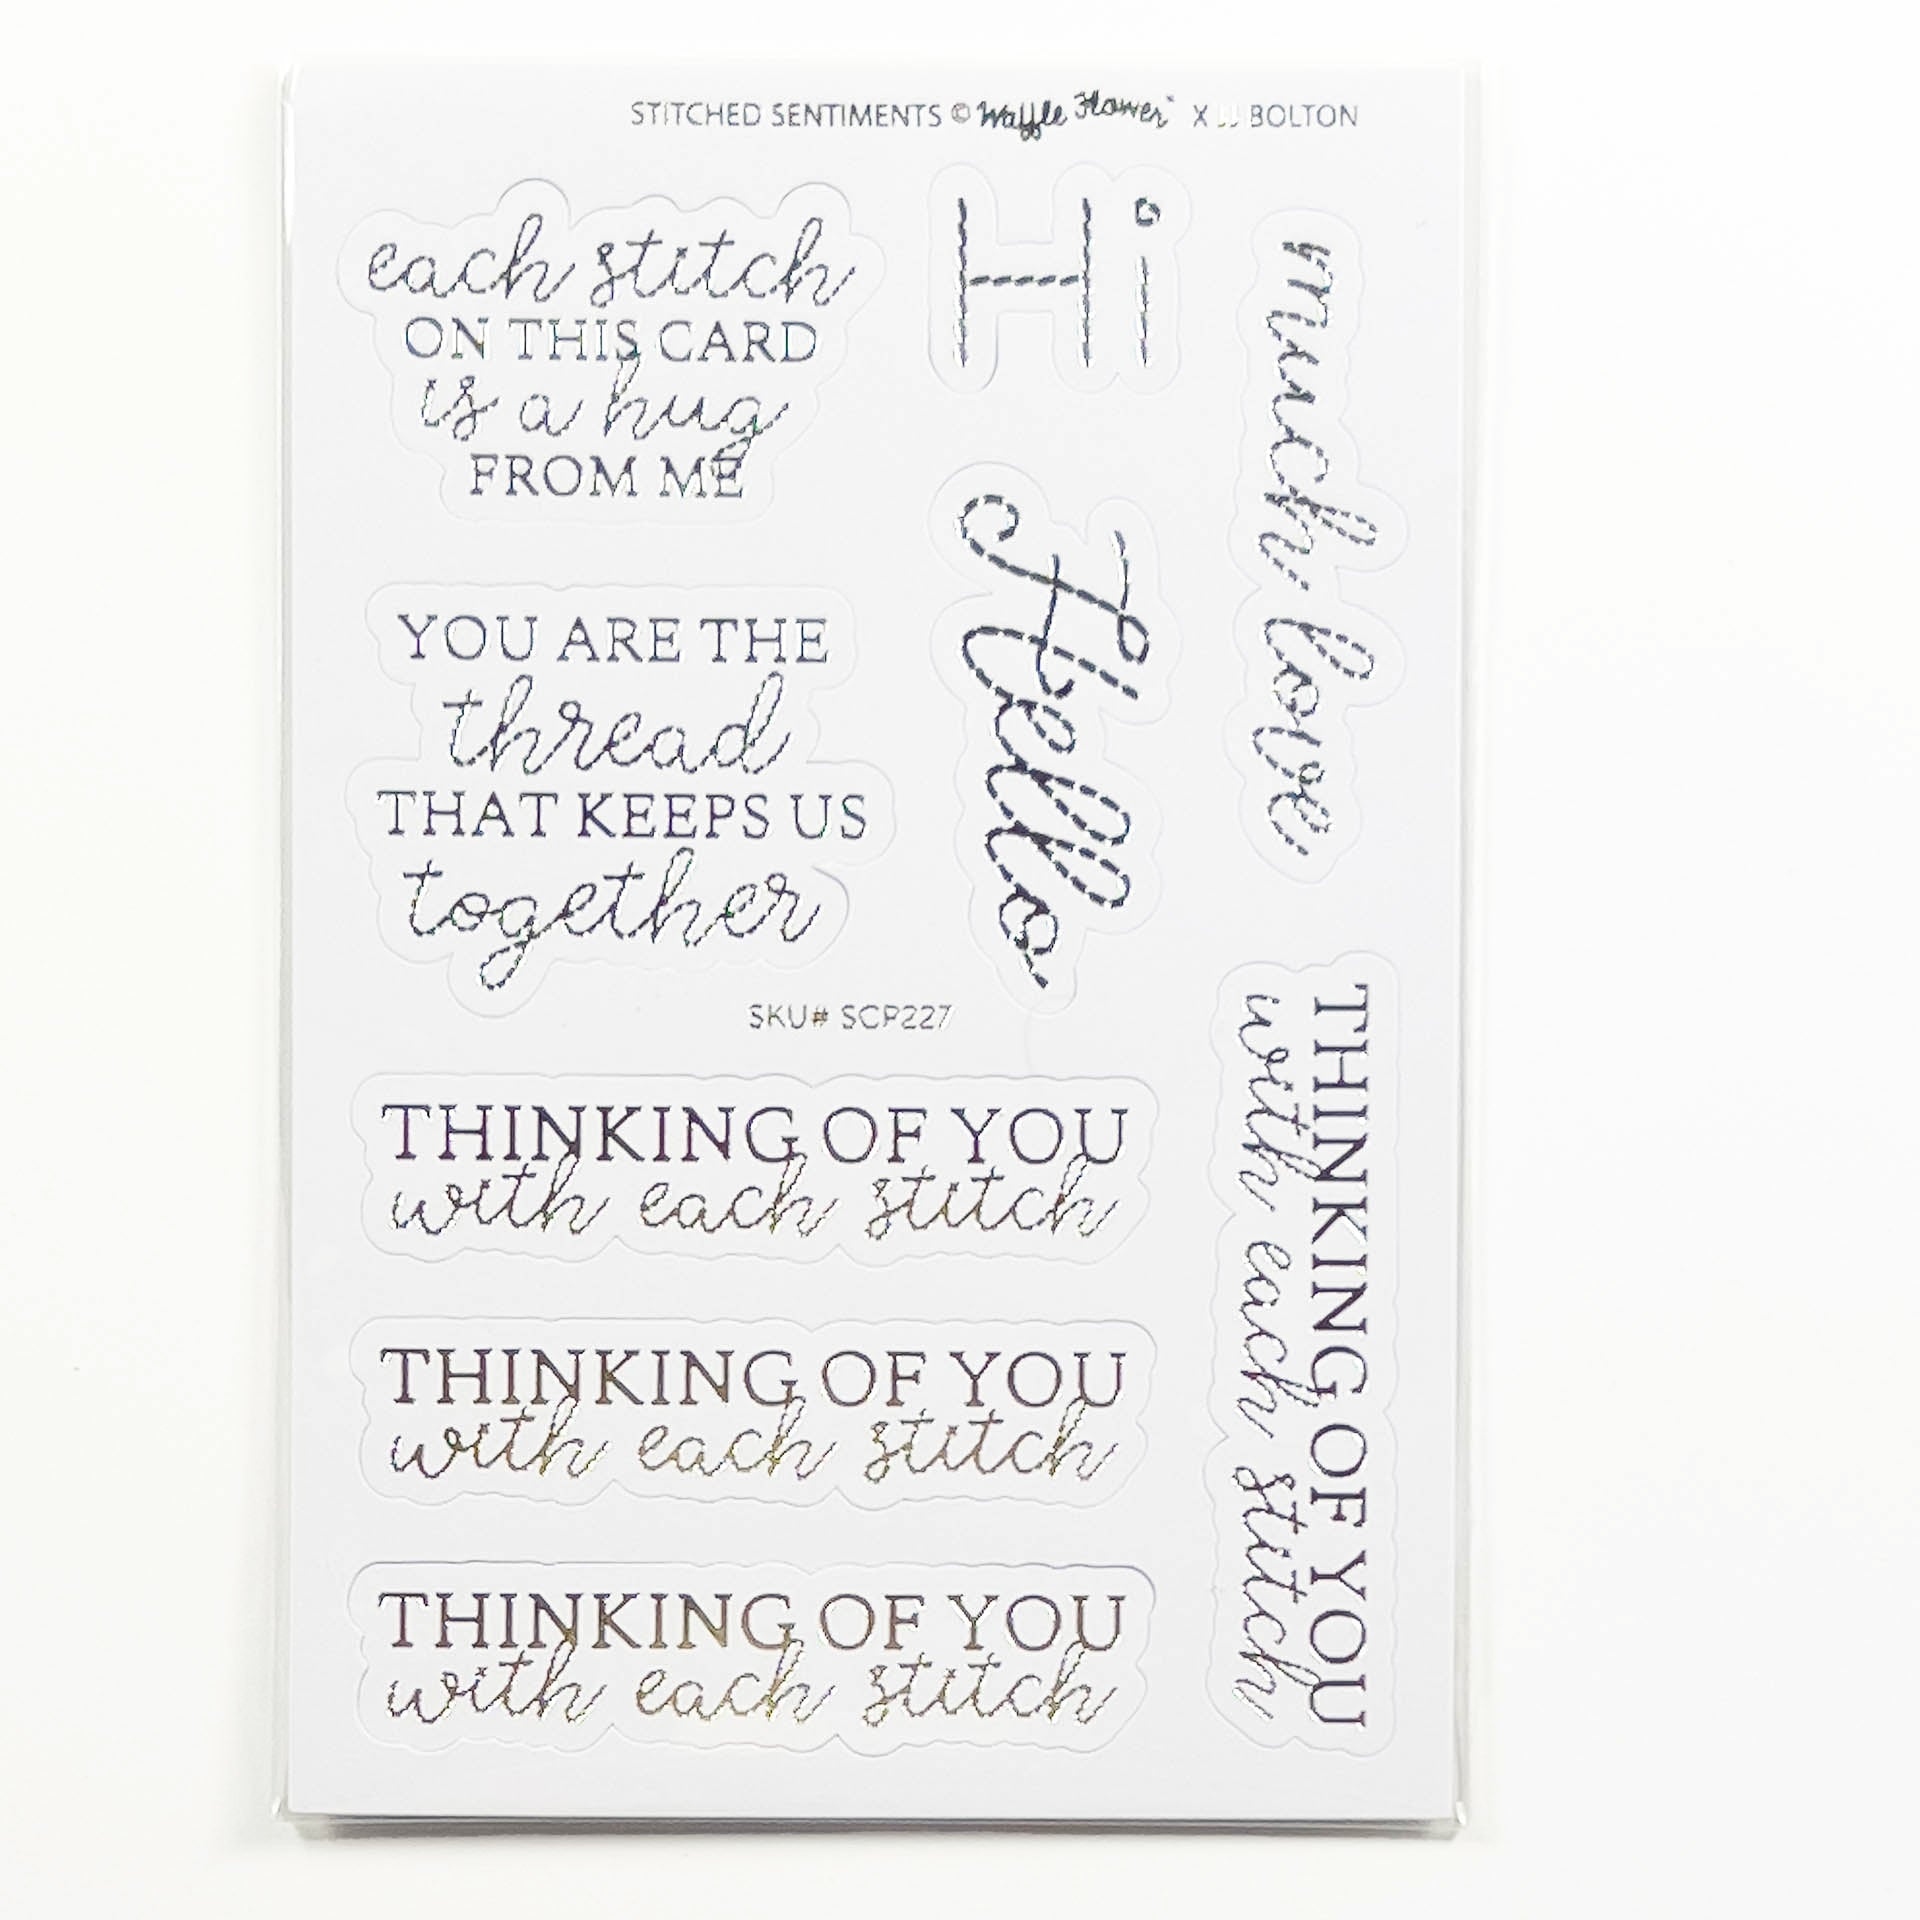 STITCHED SENTIMENTS © Waffle Flower X JJ BOLTON
each stitch
ON THIS CARD
is a hug
FROM ME
Hi
much love
YOU ARE THE
thread
THAT KEEPS US
together
Hello
SKU# SCP227
THINKING OF YOU
with each stitch
THINKING OF YOU
with each stitch
THINKING OF YOU
with each stitch
THINKING OF YOU
with each stitch